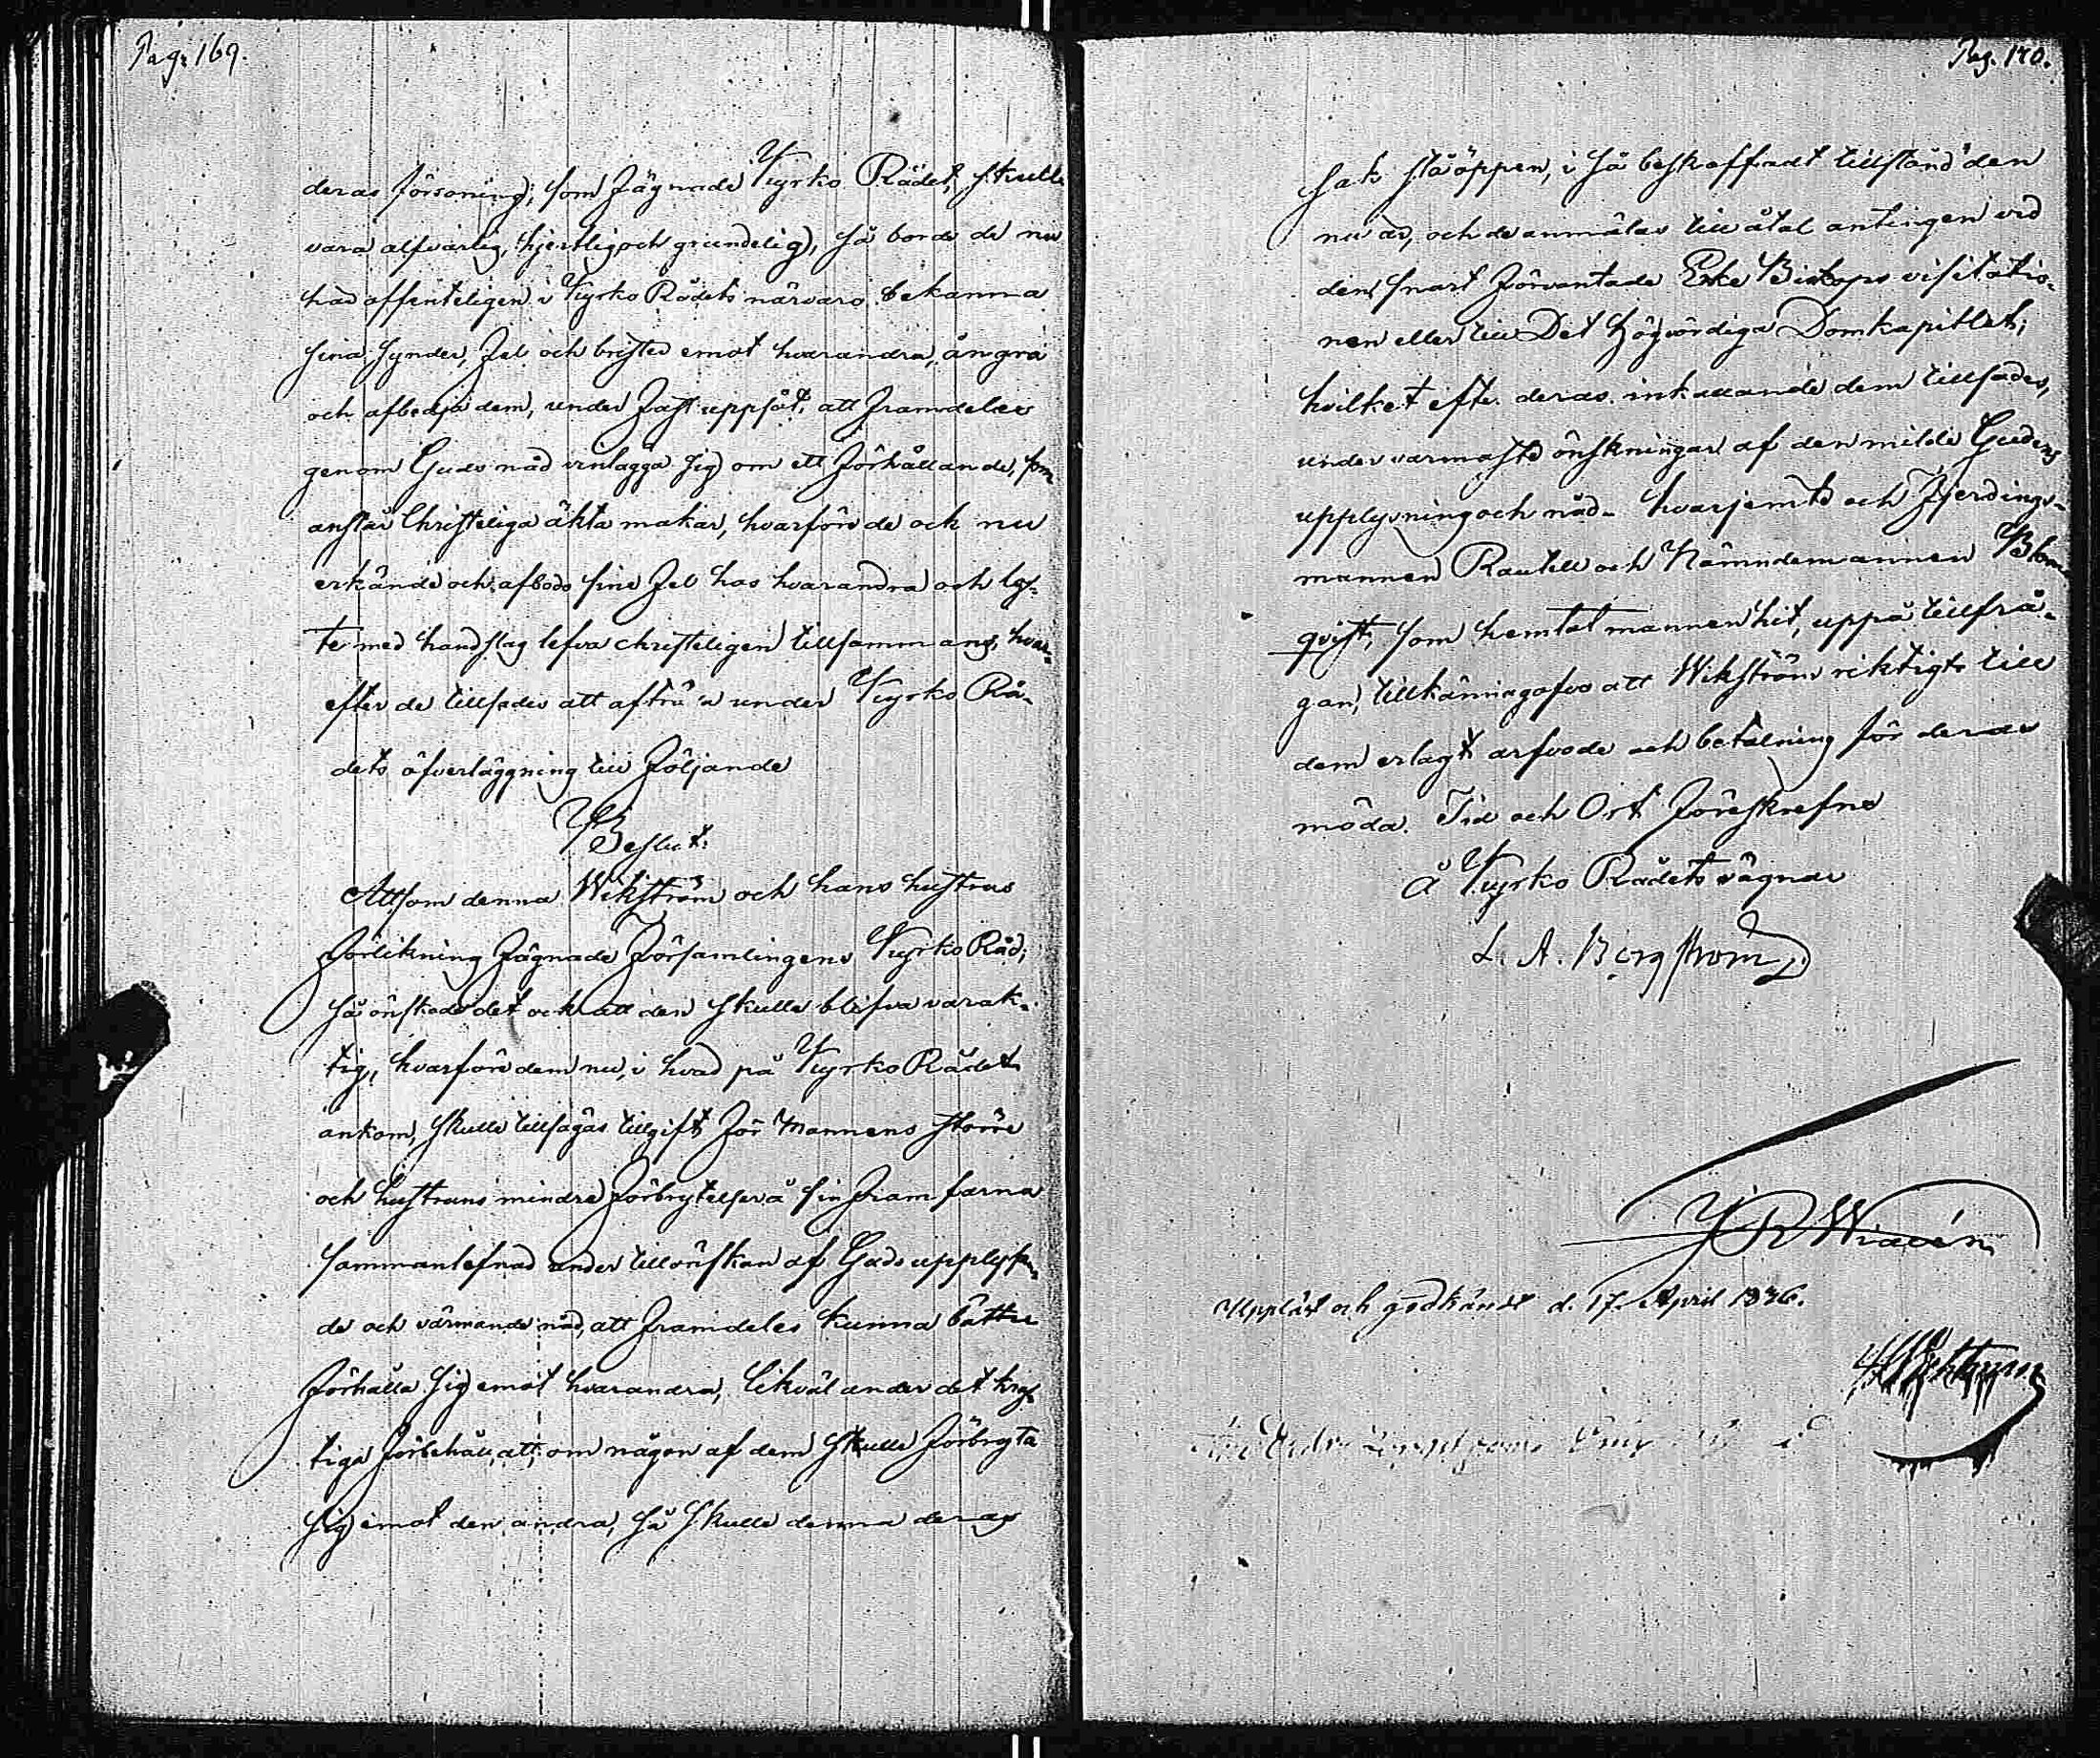 Pag. 169.
deras försoning, som fägnade Kyrko Rådet, skulle
vara alfvarlig, hjertlig och grundelig, så borde de nu
här offenteligen i Kyrko Rådets närvaro bekänna
sina synder, fel och brister emot hvarandra, ångra
och afbedja dem, under fast uppsåt, att framdeles
genom Guds nåd vinlägga sig om ett förhållande, som
anstår Christeliga äkta makar, hvarföre de ock nu
erkände och afbådo sine fel hos hvarandra och lof-
te med handslag lefva christeligen tillsammans, hvar-
efter de tillsades att afträda under Kyrko Rå-
dets öfverläggning till följande
Beslut:
Attsom denna Wikström och hans hustrus
förlikning fägnade Församlingens Kyrko Råd;
så önskade det ock att den skulle blifva varak-
tig, hvarföre dem nu, i hvad på Kyrko Rådet
ankom, skulle tillsägas tillgift för Mannens större
och hustruns mindre förbrytelser å sin framfarna
sammanlefnad under tillönskan af Guds upplysan-
de och värmande nåd, att framdeles kunna bättre
förhålla sig emot hvarandra, likväl under det kraf-
tiga förbehåll, att, om någon af dem skulle förbryta
sig emot den andra, så skulle denna deras
Pag. 170.
sak stå öppen, i så beskaffadt tillstånd den
nu är, och de anmälas till åtal antingen vid
den snart förväntade Erke Biskops visitatio-
nen eller till Det Högvördiga Domkapitlet;
hvilket efter deras inkallande dem tillsades,
under varmaste önskningar af den milde Gudens
upplysning och nåd - hvarjemte och Fjerdings-
mannen Rautell och Nämndemannen Blom-
qvist, som hemtat mannen hit, uppå tillfrå-
gan, tillkännagofvo att Wikström riktigt till
dem erlagt arfvode och betalning för deras
möda. Tid och Ort föreskrefne
å Kyrko Rådets vägnar
L. A. Bergström
Uppläst och godkändt d. 17. April 1836.